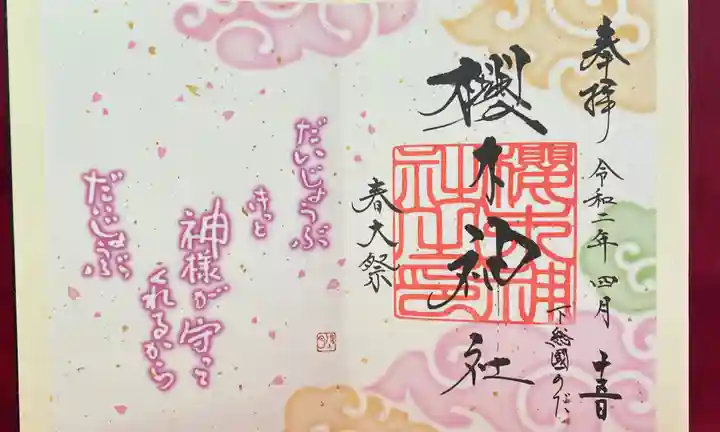 奉拝
令和二年 四月 十五日
下総國のだ
櫻木神社
櫻木神社之印
春大祭
だいじょうぶ
きっと
神様が守って
くれるから
だいじょぶ